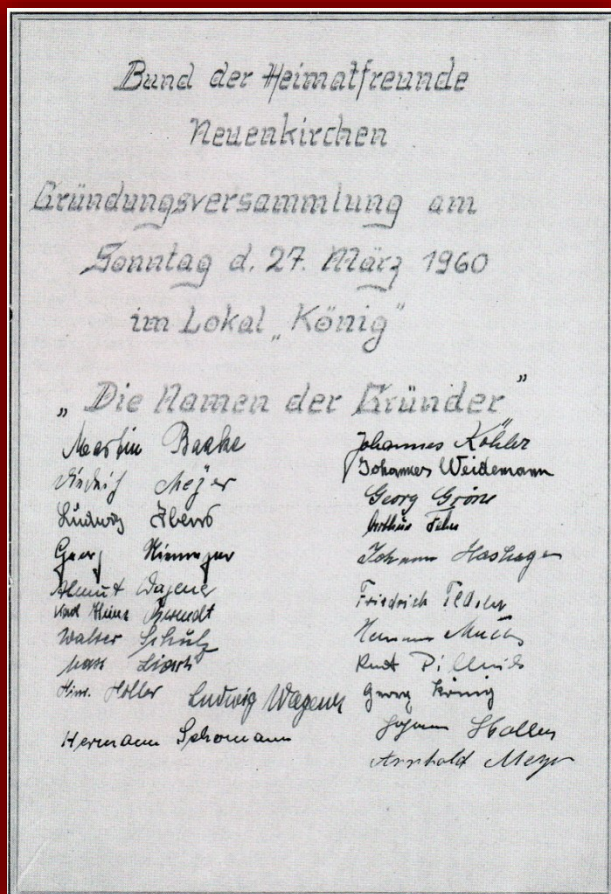 Bund der Heimatfreunde
Neuenkirchen
Gründungsversammlung am
Sonntag d. 27. März 1960
im Lokal „König"
„Die Namen der Gründer"
Martin Baake
Meyer
Ludwig
Georg
Almut Wagener
Karl Heinz
Walter Schulz
Max
Hinr. Holler
Ludwig Wagener
Hermann Schomann
Johannes Köhler
Johannes Weidemann
Georg Gröne
Arthur
Johann Hashagen
Friedrich
Hermann
Kurt
Georg König
Johann Holler
Arnhold Meyer